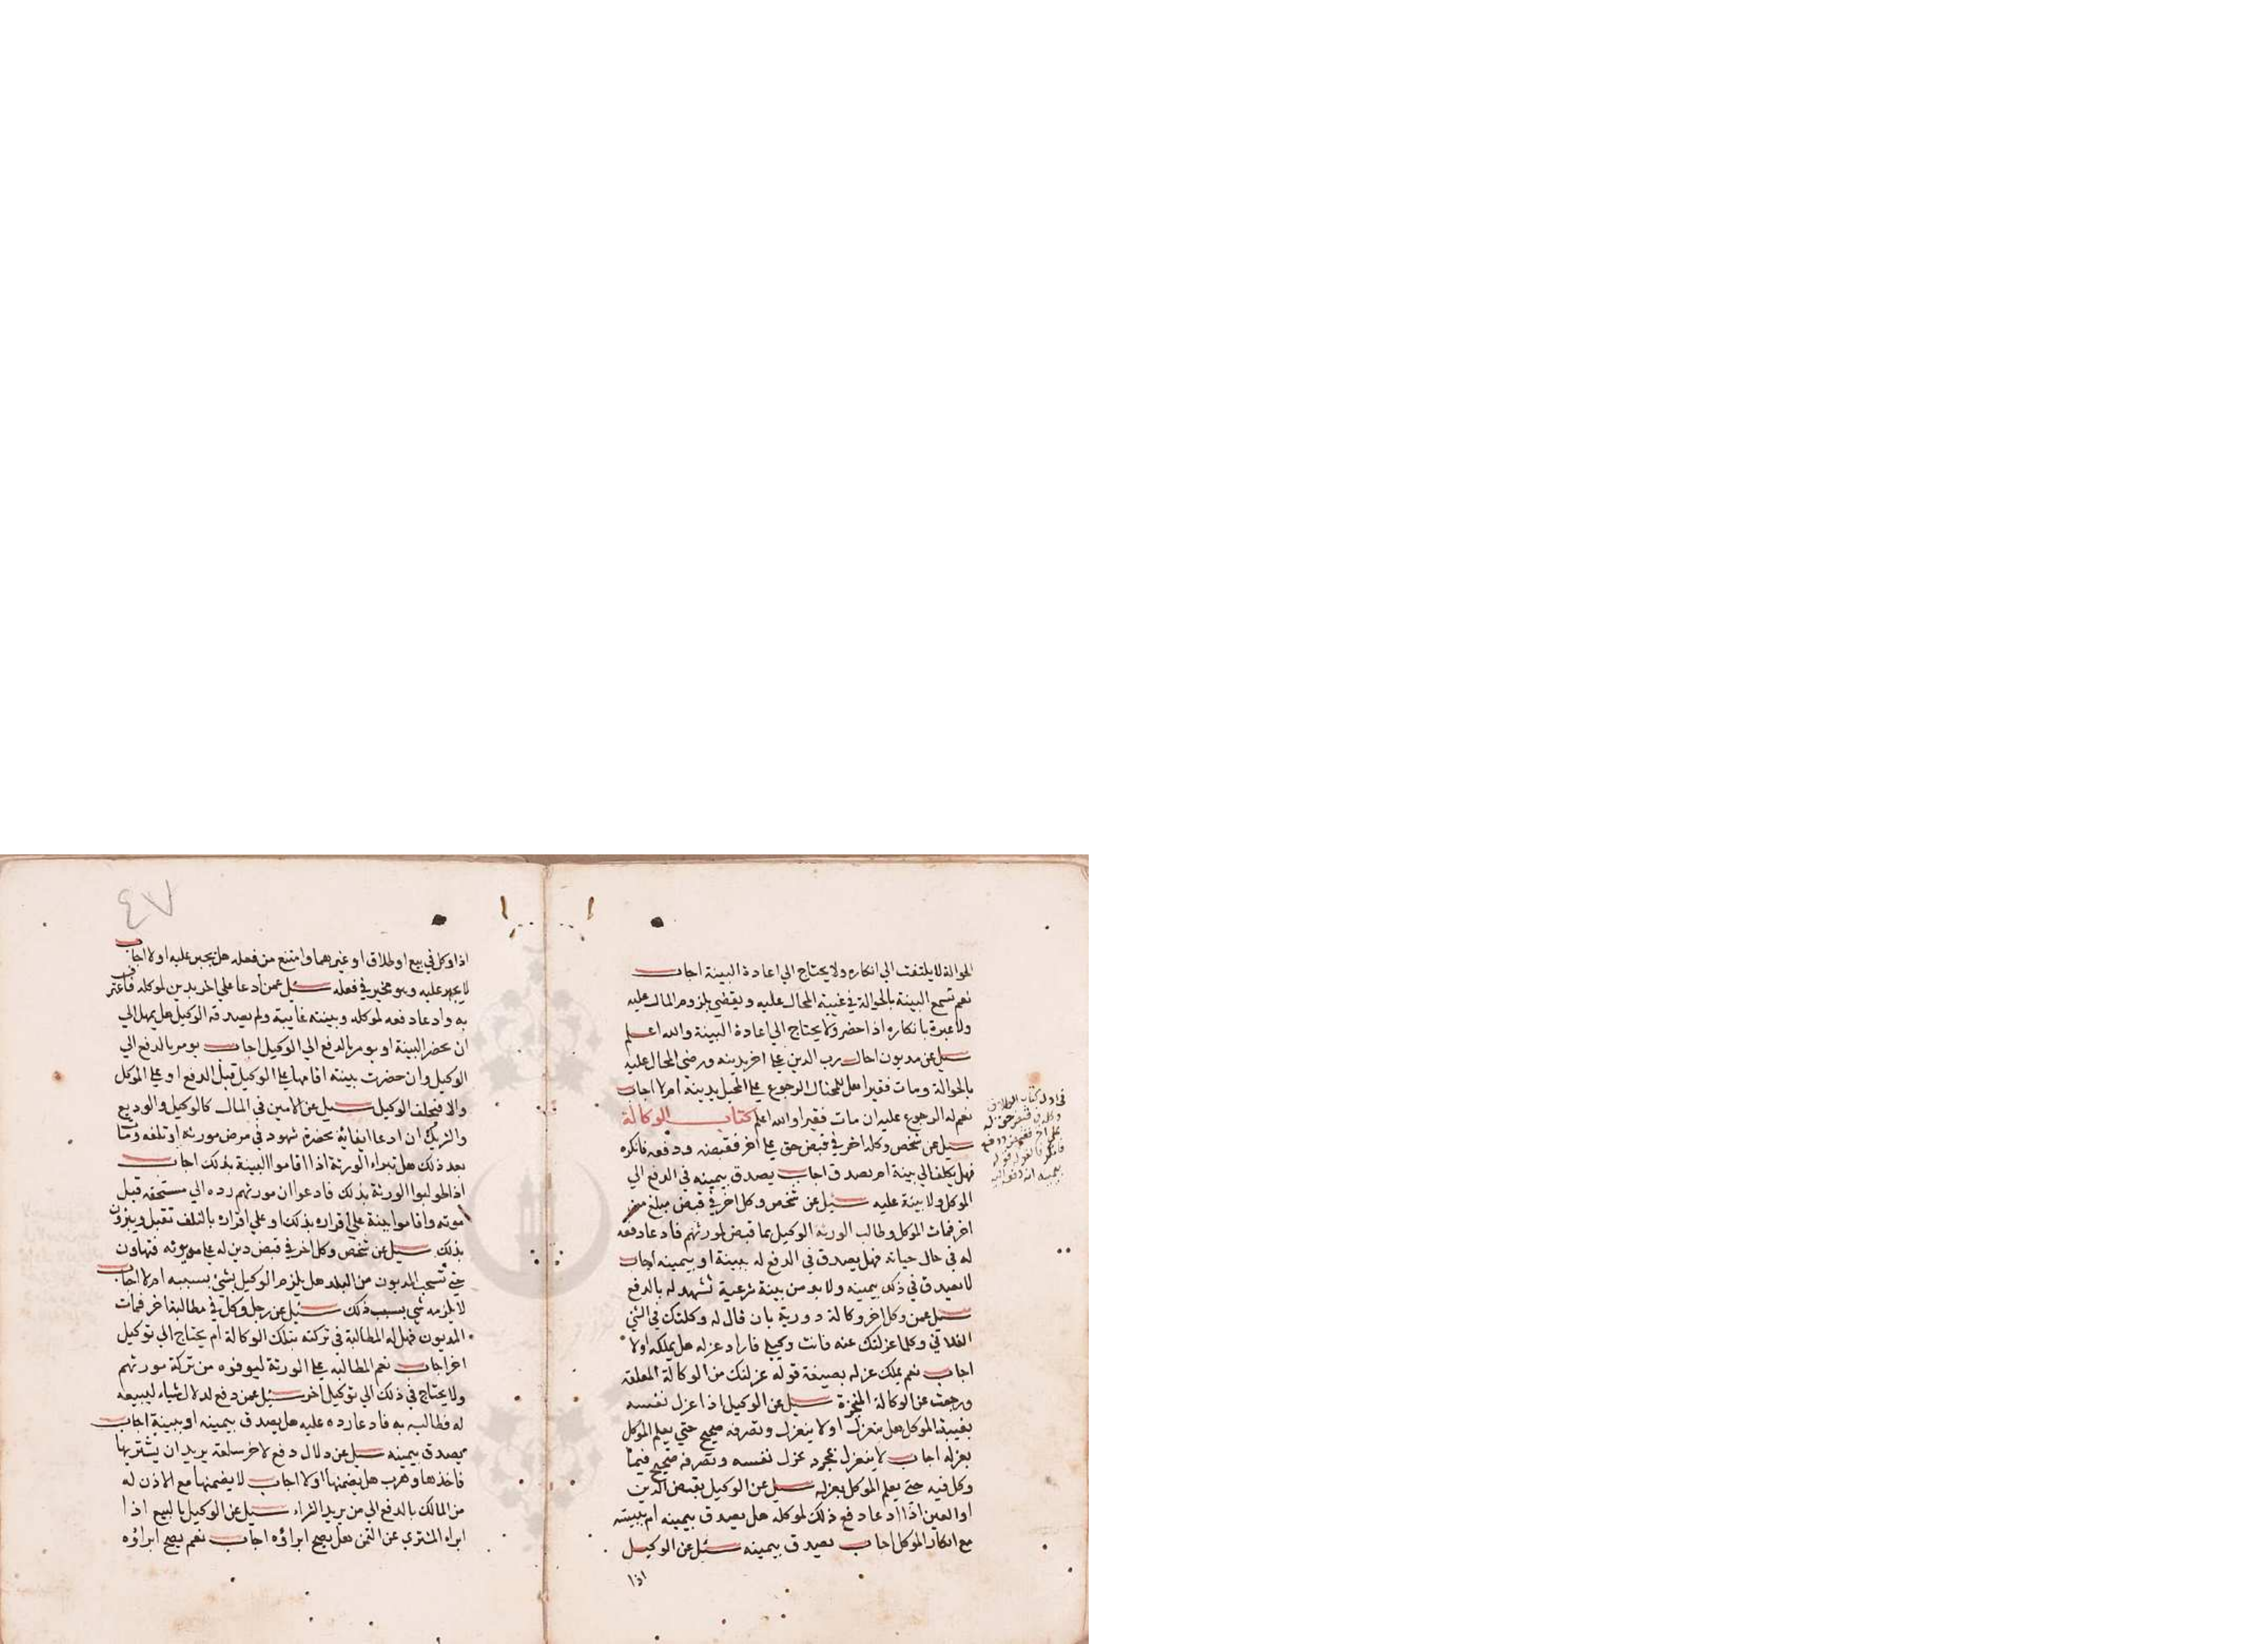 الحوالة لا يلتفت الي انكاره ولا يحتاج الي اعادة البينة اجاب
نعم تسمع البينة بالحوالة في غيبة المحال عليه ويقضي بلزوم المال عليه
ولا عبرة بانكاره اذا حضر ولا يحتاج الي اعادة البينة والله اعلم
سيل عن مديون احال رب الدين علي اخر بدينه ورضي المحال عليه
بالحوالة ومات فقيرا هل للمحتال الرجوع علي المحيل بدينه ام لا اجاب
نعم له الرجوع عليه ان مات فقيرا والله اعلم كتاب الوكالة
سيل عن شخص وكله اخر في قبض حق علي اخر فقبضه ودفعه فانكره
فهل يكلف الي بينة ام يصدق اجاب يصدق بيمينه في الدفع الي
الموكل ولا بينة عليه سيل عن شخص وكل اخر في قبض مبلغ من
اخر فمات الموكل وطالب الورثه الوكيل بما قبض لمورثهم فادعا دفعه
له في حال حياته فهل يصدق في الدفع له ببينة او بيمينه اجاب
لا يصدق في ذلك بيمينه ولا بد من بينة شرعية تشهد له بالدفع
سيل عمن وكل اخر وكالة دورية بان قال له وكلتك في الشي
الفلاني وكلما عزلتك عنه فانت وكيلي فاراد عزله هل يملكه اولا
اجاب نعم يملك عزله بصيغة قوله عزلتك من الوكالة المعلقه
ورجعت عن الوكالة المنجزة سيل عن الوكيل اذا عزل نفسه
بغيبة الموكل هل ينعزل اولا ينعزل وتصرفه صحيح حتي يعلم الموكل
بعزله اجاب لا ينعزل بمجرد عزل نفسه وتصرفه صحيح فيما
وكل فيه حتي يعلم الموكل بعزله سيل عن الوكيل بقبض الدين
او العين اذا ادعا دفع ذلك لموكله هل يصدق بيمينه ام ببينته
مع انكار الموكل اجاب يصدق بيمينه سيل عن الوكيل
اذا
في اول كتاب الوكالة
وكله في قبض حق له
علي اخر فقبض ودفع
فانكر فالقول قوله
بيمينه انه دفع اليه
٤٧
اذا وكل في بيع او طلاق او غيرهما وامتنع من فعله هل يجبر عليه او لا اجاب
لا يجبر عليه وهو مخير في فعله سيل عمن ادعا علي اخر بدين لموكله فاعترف
به وادعا دفعه لموكله وبينته غايبة ولم يصدقه الوكيل هل يمهل الي
ان يحضر البينة او يومر بالدفع الي الوكيل اجاب يومر بالدفع الي
الوكيل وان حضرت بينته اقامها علي الوكيل قبل الدفع او علي الموكل
والا فيحلف الوكيل سيل عن الامين في المال كالوكيل والوديع
والشريك ان ادعا ايفائه بحضرة شهود في مرض مورثه او تلفه ومات
بعد ذلك هل تبراء الورثة اذا اقاموا البينة بذلك اجاب
اذا طولبوا الورثة بذلك فادعوا ان مورثهم رده الي مستحقه قبل
موته واقاموا بينة علي اقراره بذلك او علي اقراره بالتلف تقبل ويبرؤن
بذلك سيل عن شخص وكل اخر في قبض دين له علي مديونه فتهاون
حتي تسحب المديون من البلد هل يلزم الوكيل بشي بسببه ام لا اجاب
لا يلزمه شي بسبب ذلك سيل عن رجل وكل في مطالبة اخر فمات
المديون فهل له المطالبة في تركته بتلك الوكالة ام يحتاج الي توكيل
اخر اجاب نعم المطالبه علي الورثة ليوفوه من تركة مورثهم
ولا يحتاج في ذلك الي توكيل اخر سيل عمن دفع لدلال شياء ليبيعه
له فطالبه به فادعا رده عليه هل يصدق بيمينه او ببينة اجاب
يصدق بيمينه سيل عن دلال دفع لاخر سلعة يريد ان يشتريها
فاخذها وهرب هل يضمنها او لا اجاب لا يضمنها مع الاذن له
من المالك بالدفع الي من يريد الشراء سيل عن الوكيل بالبيع اذا
ابراء المشتري عن الثمن هل يصح ابراؤه اجاب نعم يصح ابراؤه